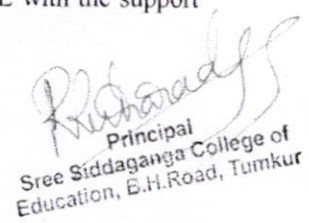 with the support
Principal
Sree Siddaganga College of
Education, B.H.Road, Tumkur